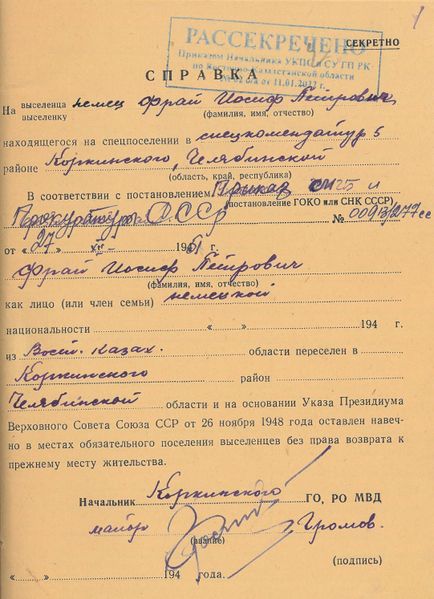 РАССЕКРЕЧЕНО
Приказом Начальника УКПСиСУ ГП РК
по Восточно-Казахстанской области
от 11.01.2012 г.
СЕКРЕТНО
СПРАВКА
На выселенца немец Фрай Иосиф Петрович
выселенку (фамилия, имя, отчество)
находящегося на спецпоселении в спецкомендатур 5
районе Коркинского, Челябинской
(область, край, республика)
В соответствии с постановлением Приказ
(постановление ГОКО или СНК СССР)
Прокуратуры СССР №
от «27» 194 г.
Фрай Иосиф Петрович
(фамилия, имя, отчество)
как лицо (или член семьи) немецкой
национальности « » 194 г.
из Вост. Казах. области переселен в
Коркинского район
Челябинской области и на основании Указа Президиума
Верховного Совета Союза ССР от 26 ноября 1948 года оставлен навеч-
но в местах обязательного поселения выселенцев без права возврата к
прежнему месту жительства.
Начальник Коркинского ГО, РО МВД
майор Громов.
(звание)
(подпись)
« » 194 года.